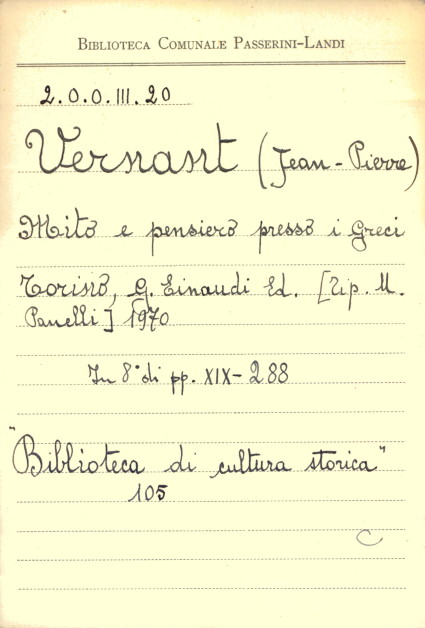 BIBLIOTECA COMUNALE PASSERINI-LANDI
2.O.O.III.20
Vernant (Jean-Pierre)
Mito e pensiero presso i Greci
Torino, G. Einaudi Ed. [Tip. M.
Panelli] 1970
In 8° di pp. XIX-288
"Biblioteca di cultura storica"
105
C